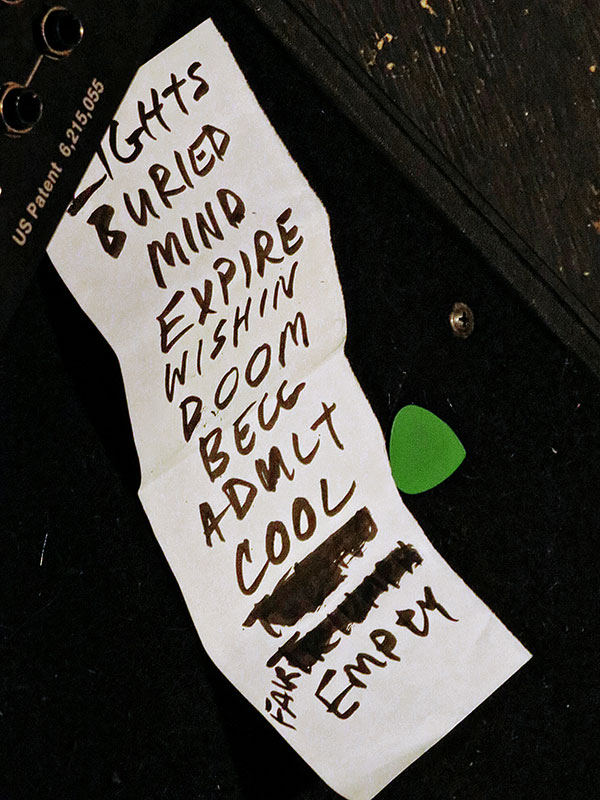 US Patent 6,215,055
LIGHTS
BURIED
MIND
EXPIRE
WISHIN
DOOM
BECG
ADULT
COOL
EMPTY